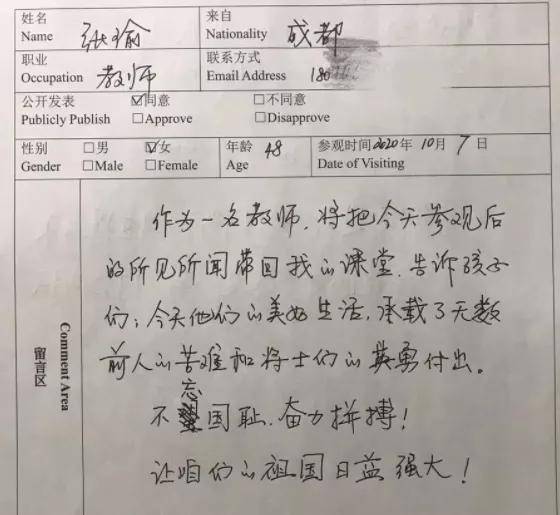 姓名 张瑜 来自 成都
Name Nationality
职业 教师 联系方式 180
Occupation Email Address
公开发表 ☑同意 □不同意
Publicly Publish □Approve □Disapprove
性别 □男 ☑女 年龄 48 参观时间2020年10月7日
Gender □Male □Female Age Date of Visiting
留言区 Comment Area
作为一名教师，将把今天参观后
的所见所闻带回我的课堂，告诉孩子
们：今天他们的美好生活，承载了无数
前人的苦难和将士们的英勇付出。
不忘国耻、奋力拼搏！
让咱们的祖国日益强大！